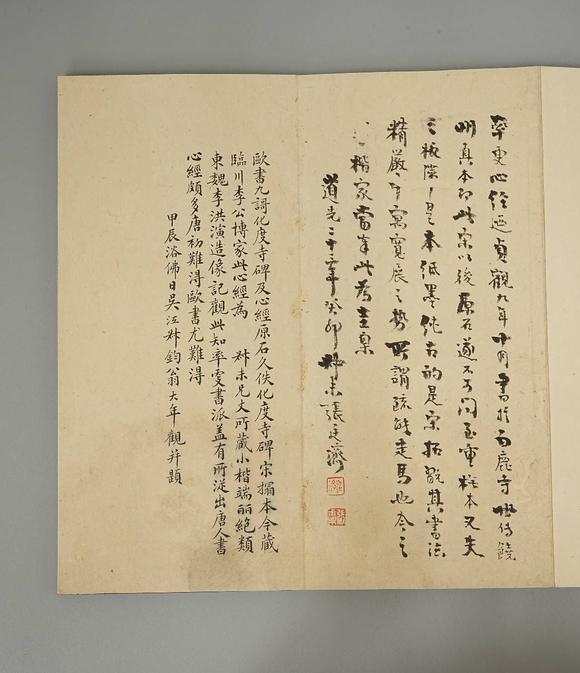 率更心經迺貞觀九年十月書於白鹿寺世傳饒
州真本即此宋以後原石遂不可問至重摹本又失
之板滯是本紙墨純古的是宋拓觀其書法
精嚴中寓寬展之勢所謂疏能走馬也今之
楷家當奉此為圭臬
道光二十三年癸卯叔未張廷濟
歐書九謌化度寺碑及心經原石久佚化度寺碑宋搨本今藏
臨川李公博家此心經為 叔未兄丈所藏小楷端麗絕類
東魏李洪演造像記觀此知率更書派蓋有所從出唐人書
心經頗多唐初難淂歐書尤難淂
甲辰浴佛日吳江叔鈞翁大年觀并題